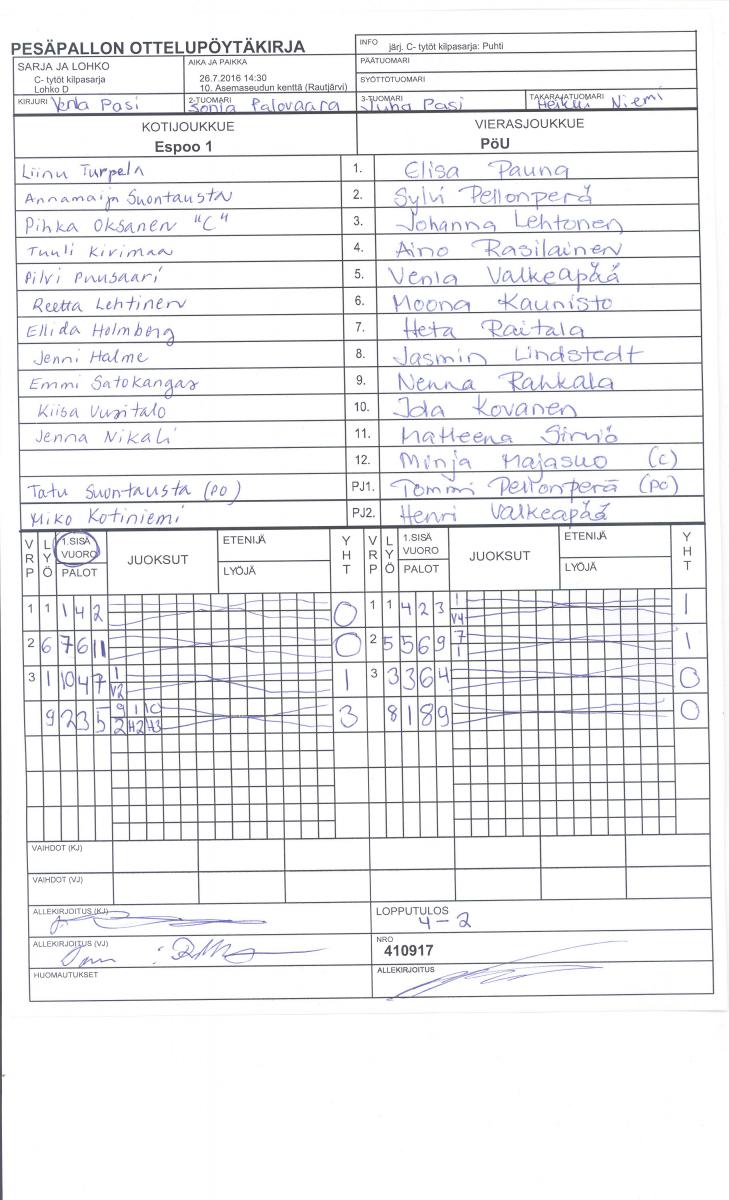 PESÄPALLON OTTELUPÖYTÄKIRJA
INFO järj. C- tytöt kilpasarja: Puhti
PÄÄTUOMARI
SYÖTTÖTUOMARI
SARJA JA LOHKO
C- tytöt kilpasarja
Lohko D
AIKA JA PAIKKA
26.7.2016 14:30
10. Asemaseudun kenttä (Rautjärvi)
KIRJURI Venla Pasi 2-TUOMARI Sonja Palovaara 3-TUOMARI Juha Pasi TAKARAJATUOMARI Heikki Niemi
KOTIJOUKKUE VIERASJOUKKUE
Espoo 1 PöU
Liinu Turpela 1. Elisa Pauna
Annamaija Suontausta 2. Sylvi Pellonperä
Pihka Oksanen "C" 3. Johanna Lehtonen
Tuuli Kirimaa 4. Aino Rasilainen
Pilvi Puusaari 5. Venla Valkeapää
Reetta Lehtinen 6. Moona Kaunisto
Ellida Holmberg 7. Heta Raitala
Jenni Halme 8. Jasmin Lindstedt
Emmi Satokangas 9. Nenna Rahkala
Kiisa Uusitalo 10. Ida Kovanen
Jenna Nikali 11. Matleena Sirviö
12. Minja Majasuo (C)
Tatu Suontausta (PO) PJ1. Tommi Pellonperä (PO)
Miko Kotiniemi PJ2. Henri Valkeapää
VRP LYÖ 1.SISÄ VUORO PALOT JUOKSUT ETENIJÄ LYÖJÄ YHT VRP LYÖ 1.SISÄ VUORO PALOT JUOKSUT ETENIJÄ LYÖJÄ YHT
1 1 1 4 2 0 1 1 4 2 3 1 V4 1
2 6 7 6 11 0 2 5 5 6 9 7 1 1
3 1 10 4 7 1 V2 1 3 3 3 6 4 0
9 2 3 5 9 1 10 2 H2 H3 3 8 1 8 9 0
VAIHDOT (KJ)
VAIHDOT (VJ)
ALLEKIRJOITUS (KJ) LOPPUTULOS
4 - 2
ALLEKIRJOITUS (VJ) NRO
410917
HUOMAUTUKSET ALLEKIRJOITUS